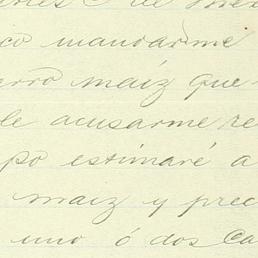 co mandarme
arro maíz que-
le acusarme re
po estimaré a
maiz y prec
uno ó dos Ca